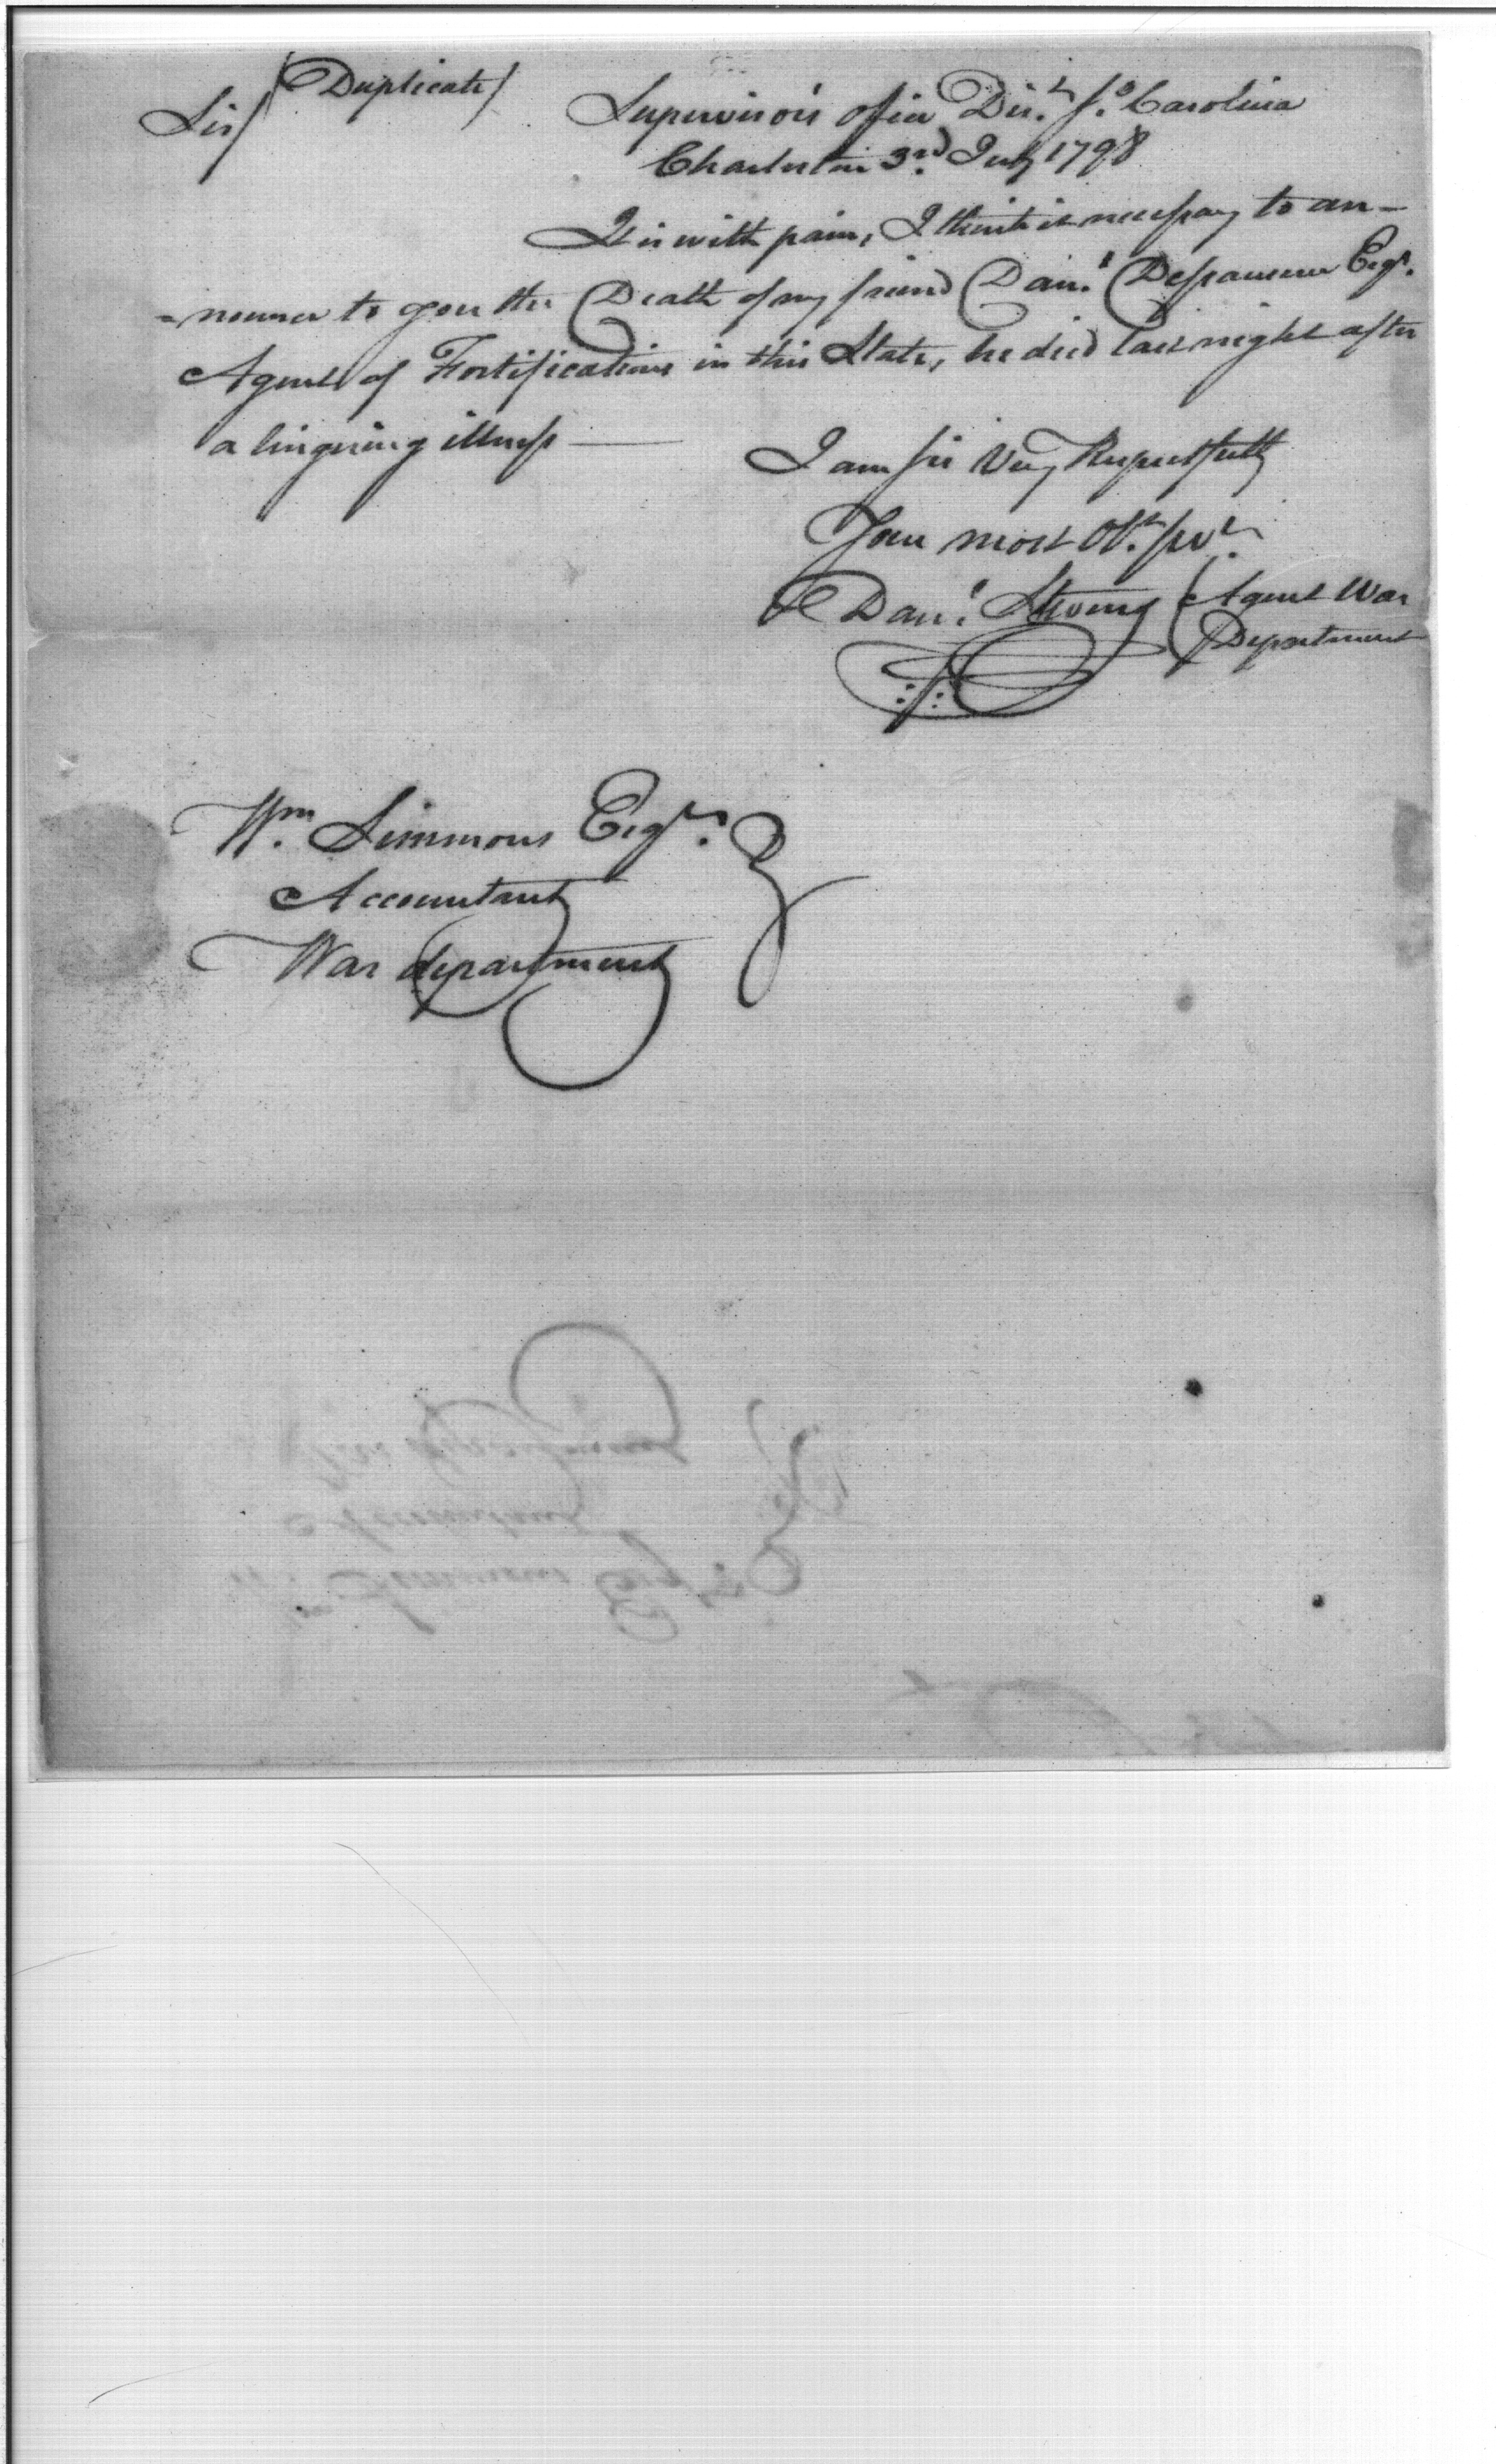 (Duplicate)
Sir/
Supervisor's Office Dist. So. Carolina
Charleston 3rd. July 1798
It is with pain, I think it necessary to an-
=nounce to you the Death of my friend Danl. Dessausure Esqr.
Agent of Fortifications in this State, he died last night after
a lingering illness —
I am Sir Very Respectfully
Your most Obt. Sevt.
Danl. Stevens (Agent War
Department
Wm. Simmons Esqr.
Accountant
War department